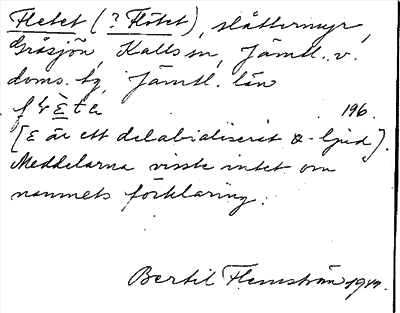 Fletet (? Flötet), slåttermyr,
Gråsjön, Kalls sn, Jämtl. v.
doms. tg, Jämtl. län
196.
[ε är ett delabialiserat œ-ljud].
Meddelarna visste intet om
namnets förklaring.
Bertil Flemström 19